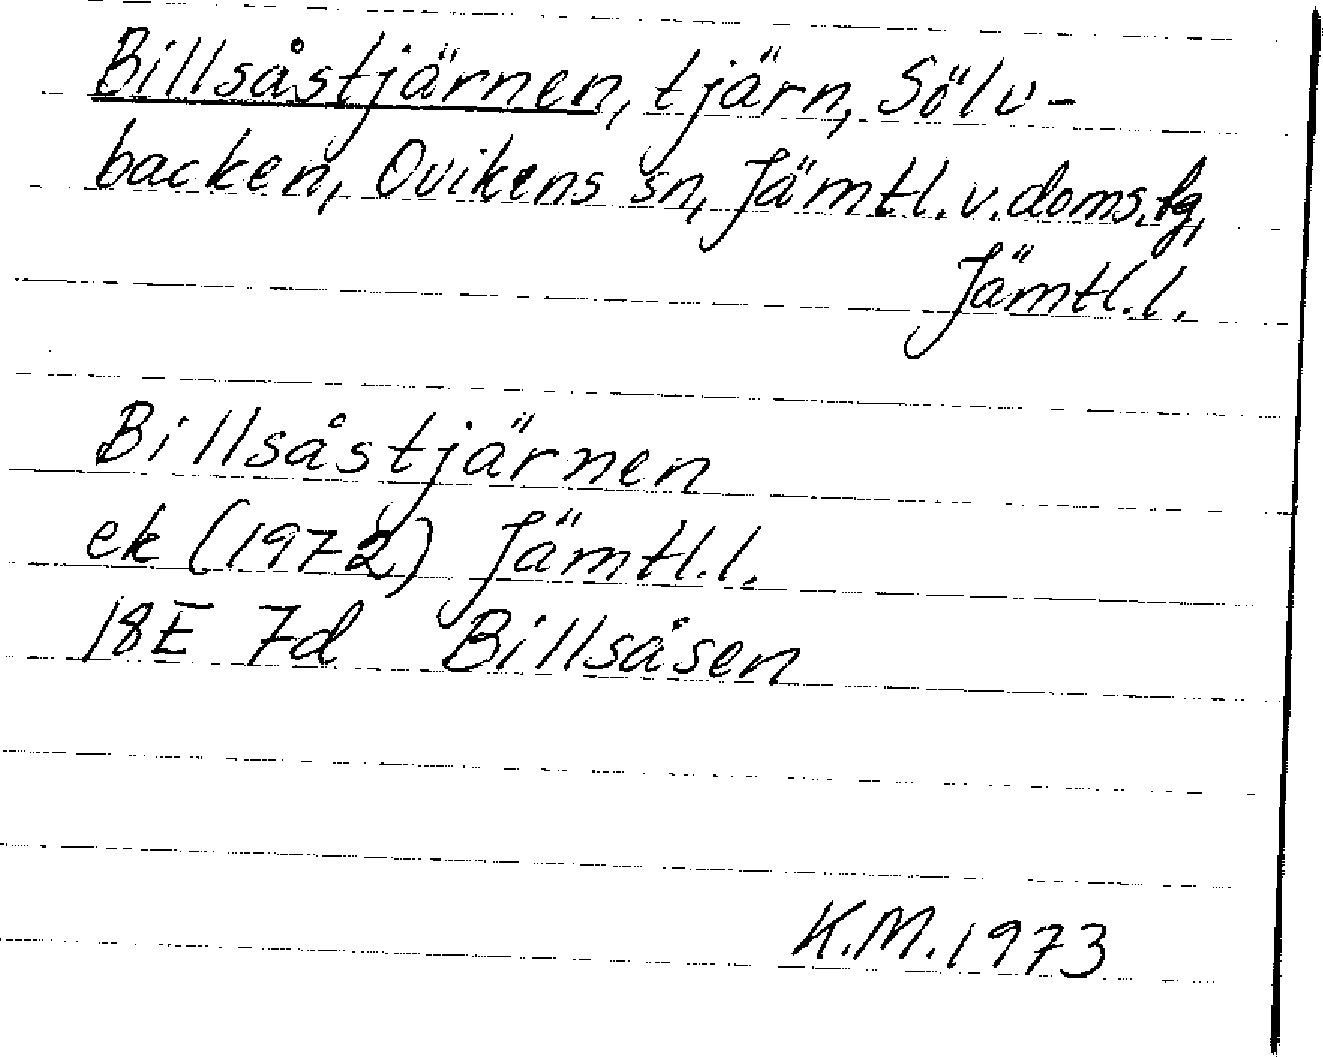 Billsåstjärnen, tjärn, Sölv-
backen, Ovikens sn, Jämtl. v. doms.fg,
Jämtl.l.
Billsåstjärnen
ek (1972) Jämtl.l.
18E 7d Billsåsen
K.M.1973